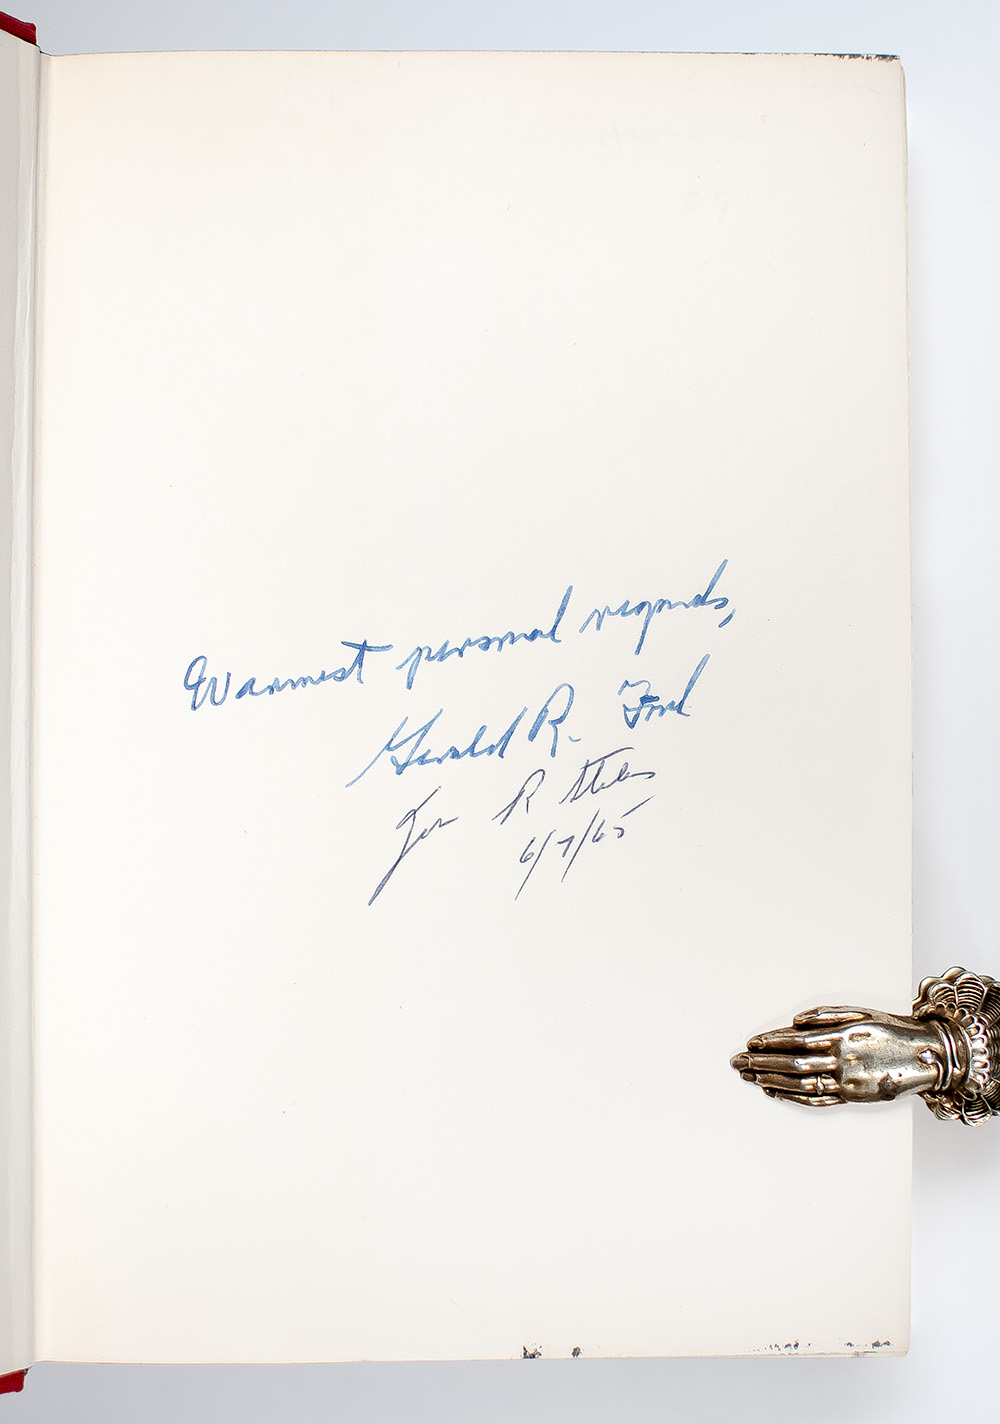 Warmest personal regards,
Gerald R. Ford
R Stiles
6/7/65